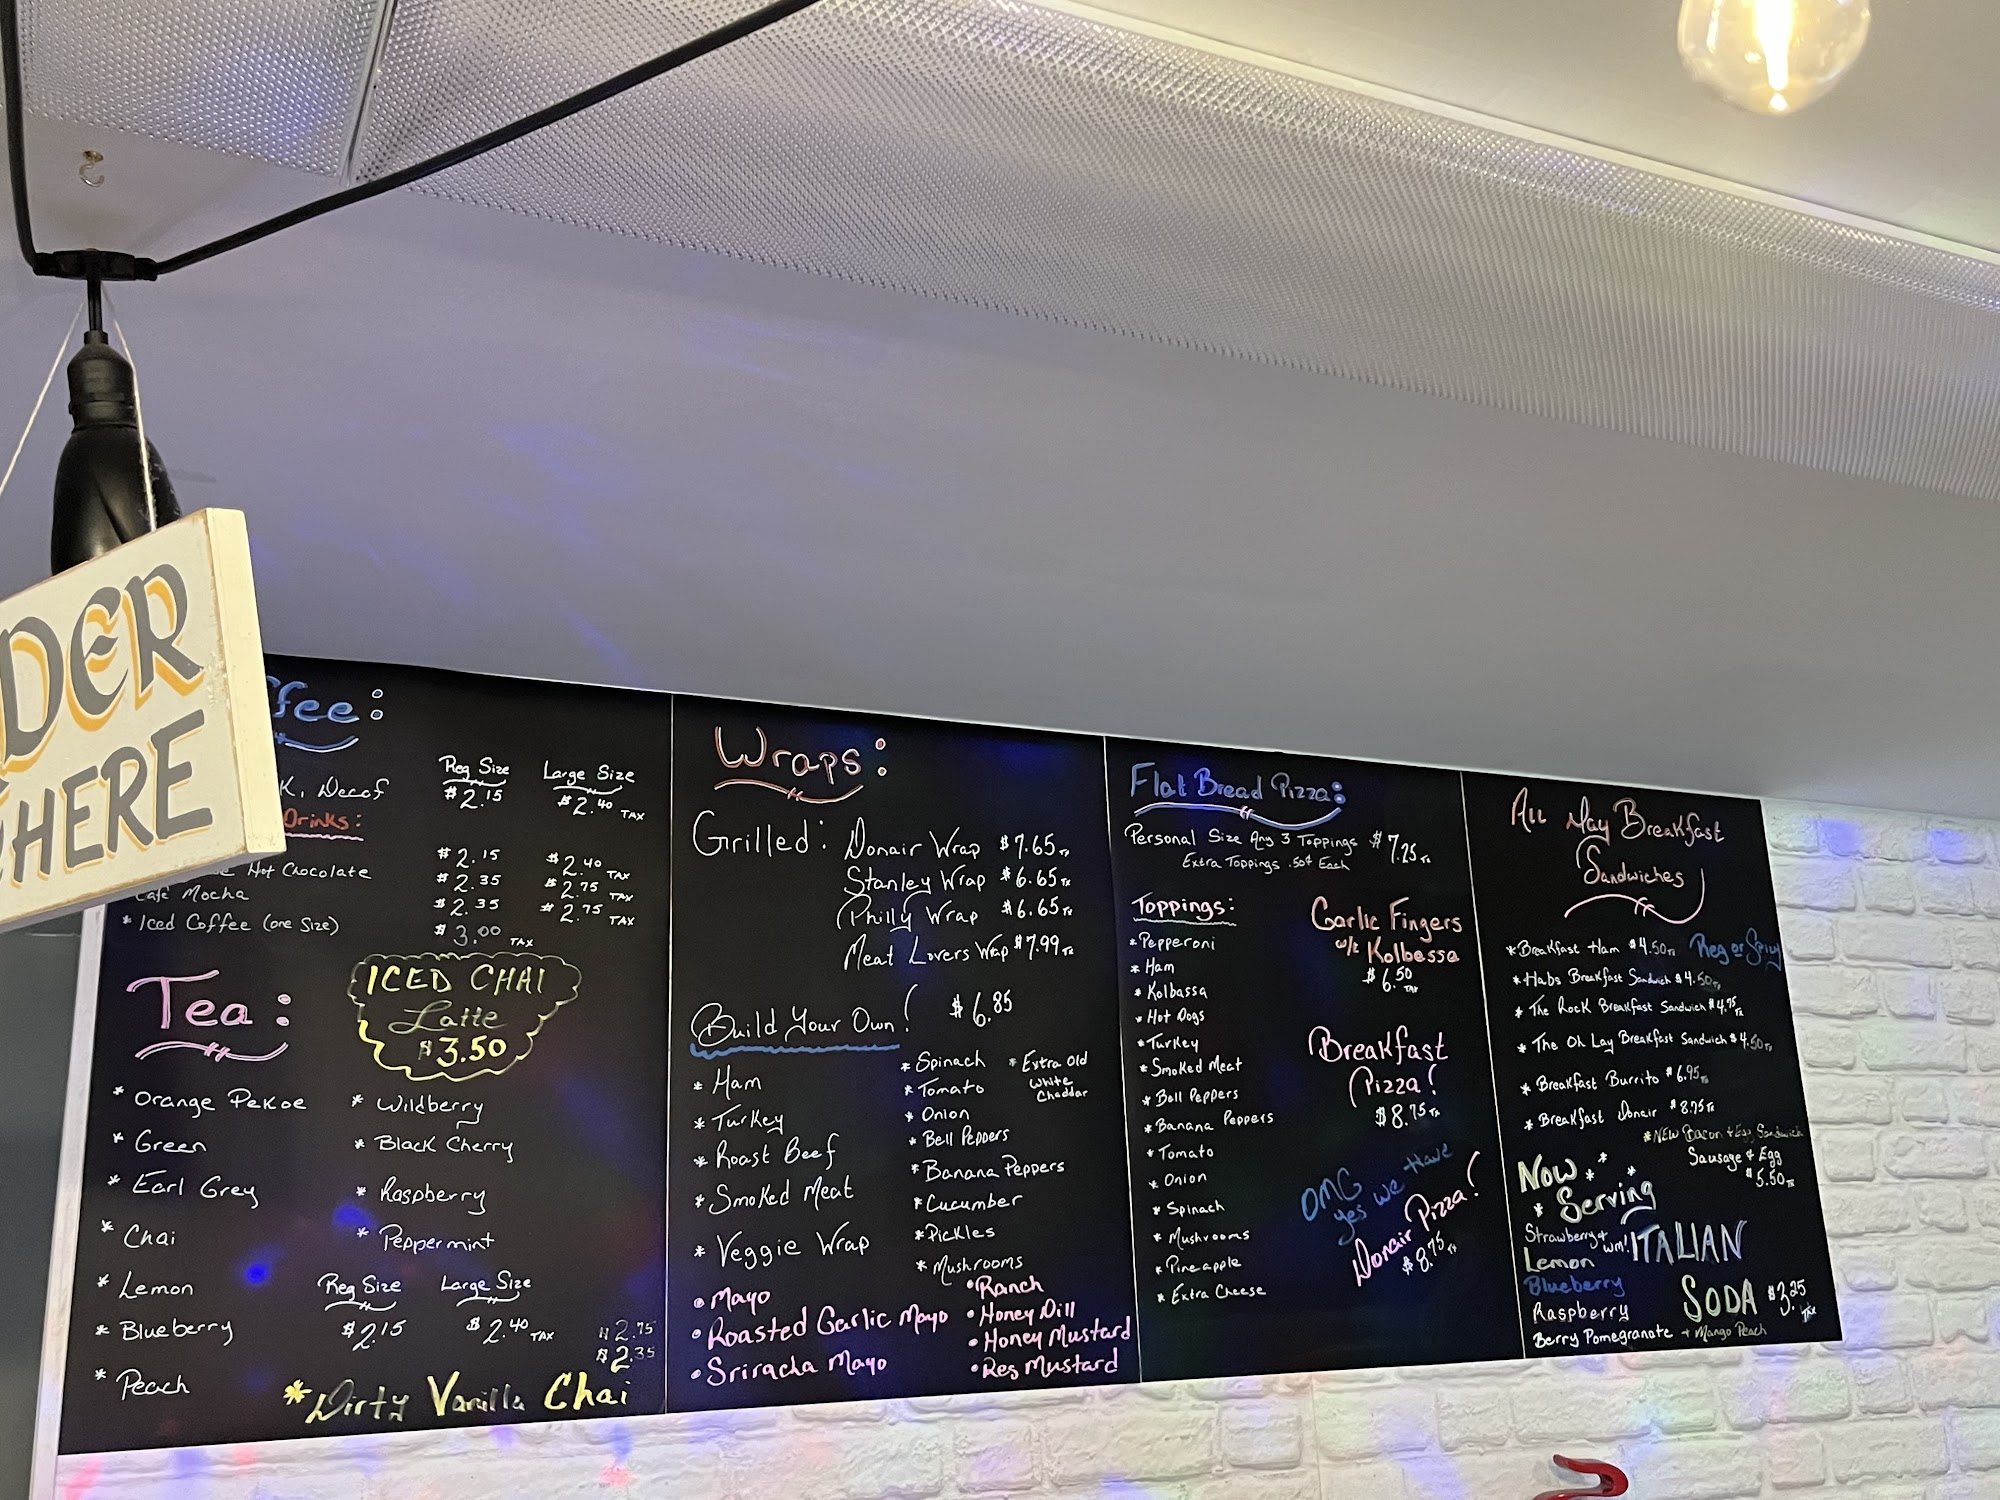 DER
HERE
ffee:
K, Decaf
Reg Size
$2.15
Large Size
$2.40 TAX
Drinks:
$2.15
$2.40 TAX
Hot Chocolate
$2.35
$2.75 TAX
Cafe Mocha
$2.35
$2.75 TAX
* Iced Coffee (one Size)
$3.00 TAX
Tea:
ICED CHAI
Latte
$3.50
* Orange Pekoe
* Green
* Earl Grey
* Chai
* Lemon
* Blueberry
* Peach
* Wildberry
* Black Cherry
* Raspberry
* Peppermint
Reg Size
$2.15
Large Size
$2.40 TAX
$2.75
$2.35
*Dirty Vanilla Chai
Wraps:
Grilled:
Donair Wrap $7.65 Tx
Stanley Wrap $6.65 Tx
Philly Wrap $6.65 Tx
Meat Lovers Wrap $7.99 Tx
Build Your Own! $6.85
* Ham
* Turkey
* Roast Beef
* Smoked Meat
* Veggie Wrap
* Spinach
* Tomato
* Onion
* Bell Peppers
* Banana Peppers
* Cucumber
* Pickles
* Mushrooms
* Extra Old
White
Cheddar
• Mayo
• Roasted Garlic Mayo
• Sriracha Mayo
• Ranch
• Honey Dill
• Honey Mustard
• Res Mustard
Flat Bread Pizza:
Personal Size Any 3 Toppings $7.25 Tx
Extra Toppings .50¢ Each
Toppings:
* Pepperoni
* Ham
* Kolbassa
* Hot Dogs
* Turkey
* Smoked Meat
* Bell Peppers
* Banana Peppers
* Tomato
* Onion
* Spinach
* Mushrooms
* Pineapple
* Extra Cheese
Garlic Fingers
Kolbassa
$6.50
TAX
Breakfast
Pizza!
$8.75 Tx
OMG
yes we have
Donair Pizza!
$8.75 Tx
All Day Breakfast
Sandwiches
* Breakfast Ham $4.50 Tx Reg or Spicy
* Habs Breakfast Sandwich $4.50 Tx
* The Rock Breakfast Sandwich $4.75 Tx
* The Oh Lay Breakfast Sandwich $4.50 Tx
* Breakfast Burrito $6.95 Tx
* Breakfast Donair $8.75 Tx
*NEW Bacon & Egg Sandwich
Sausage & Egg
$5.50 Tx
Now
Serving
ITALIAN
SODA $3.25
TAX
Strawberry + wm!
Lemon
Blueberry
Raspberry
Berry Pomegranate + Mango Peach